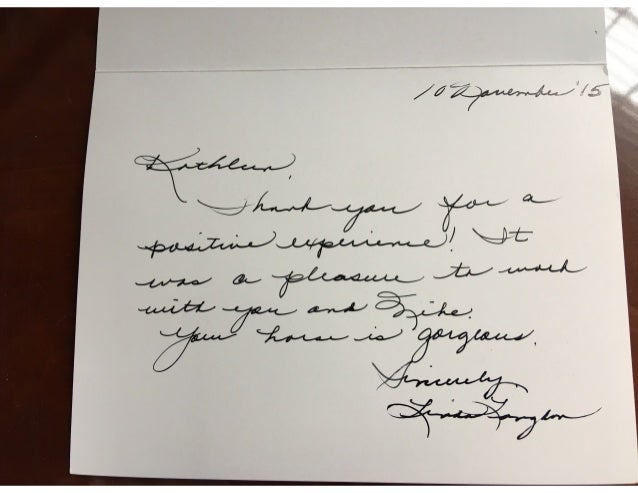 10 November '15
Kathleen,
Thank you for a
positive experience! It
was a pleasure to work
with you and Mike.
Your horse is gorgeous.
Sincerely
Linda